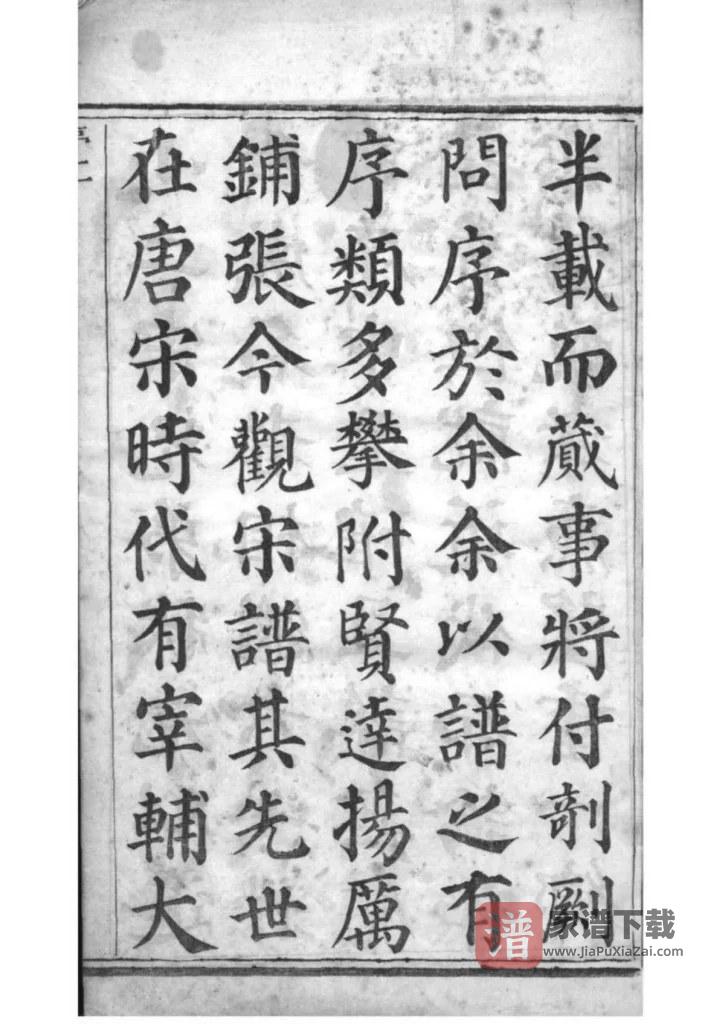 半載而蕆事將付剞劂
問序於余余以譜之有
序類多攀附賢達揚厲
鋪張今觀宋譜其先世
在唐宋時代有宰輔大
譜
家谱下载
www.JiaPuXiaZai.com